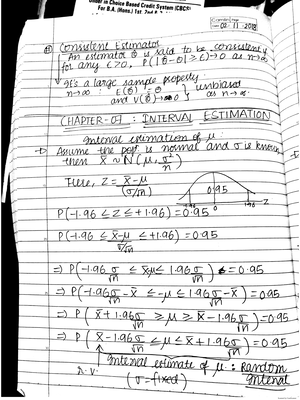 Under in Choice Based Credit System (CBCS)
For B.A. (Hons.) 1st, 2nd &
02-11-2018
Consistent Estimator
An estimator θ̂ is said to be consistent if
for any ε>0, P(|θ̂-θ| ≥ ε)→0 as n→∞
It's a large sample property
n→∞ : E(θ̂) = θ } unbiased
and V(θ̂)→0 } as n→∞.
CHAPTER-07: INTERVAL ESTIMATION
Interval estimation of μ:
→ Assume the popⁿ is normal and σ is known
then X̄ ~ N(μ, σ²/n)
Here, Z = X̄-μ/(σ/√n)
0.95
-1.96 0 1.96
P(-1.96 ≤ Z ≤ +1.96) = 0.95
P(-1.96 ≤ X̄-μ/σ/√n ≤ +1.96) = 0.95
⇒ P(-1.96 σ/√n ≤ X̄-μ ≤ 1.96 σ/√n) = 0.95
⇒ P(-1.96 σ/√n - X̄ ≤ -μ ≤ 1.96 σ/√n - X̄) = 0.95
⇒ P(X̄ + 1.96 σ/√n ≥ μ ≥ X̄ - 1.96 σ/√n) = 0.95
⇒ P(X̄ - 1.96 σ/√n ≤ μ ≤ X̄ + 1.96 σ/√n) = 0.95
Interval estimate of μ : Random
r.v. (σ = fixed) Interval